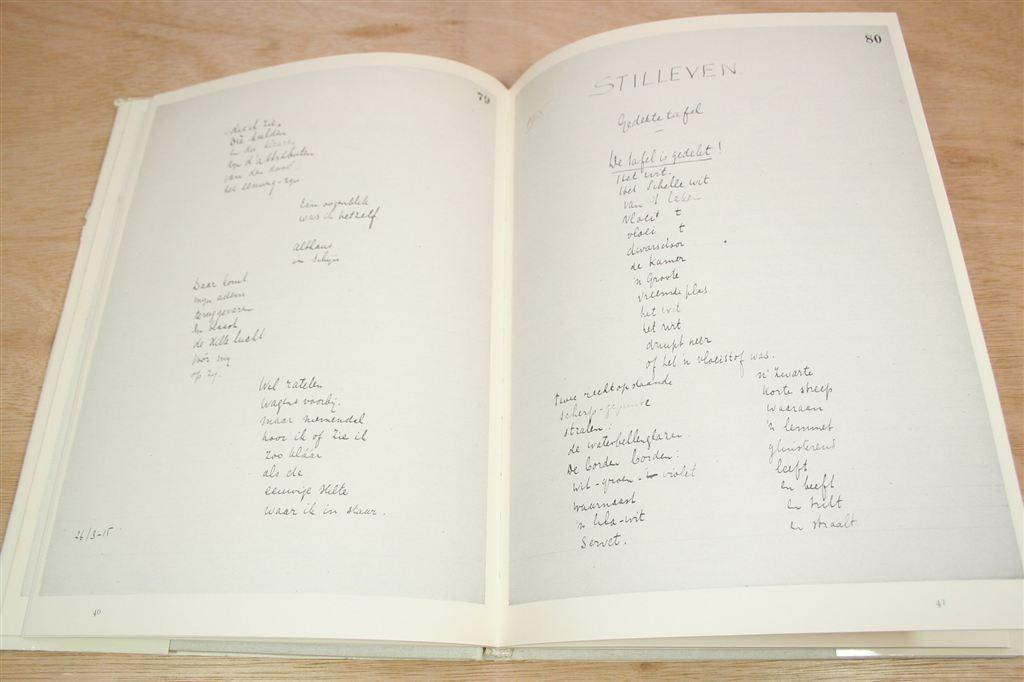 79
die ik zie.
Die kulden
in de kleure
en d'attributen
van den dood
het eeuwig-zyn
Eén oogenblik
was ik hetzelf
althans
in schijn
Daar komt
mijn adem
teruggevaren
En blaast
de stilte lucht
vóór my
op zy.
Wel ratelen
wagens voorby.
maar niemendal
hoor ik of zie ik
zoo kláár
als de
eeuwige stilte
waar ik in staar.
26/3-15.
40
80
STILLEVEN
1915
Gedekte tafel
De tafel is gedekt!
Het wit.
Het schelle wit
van 't laken
vloeit
vloei t
dwarsdoor
de kamer
'n Groote
vreemde plas
het wit
het wit
druipt neer
of het 'n vloeistof was.
twee rechtopstaande
scherp-gepunte
stralen:
de waterbellenglazen.
De borden borden:
wit-groen- violet
waarnaast
'n lila-wit
Servet.
'n Zwarte
korte streep
waaraan
'n lemmet
glinsterend
leeft
en beeft
en trilt
en straalt
41